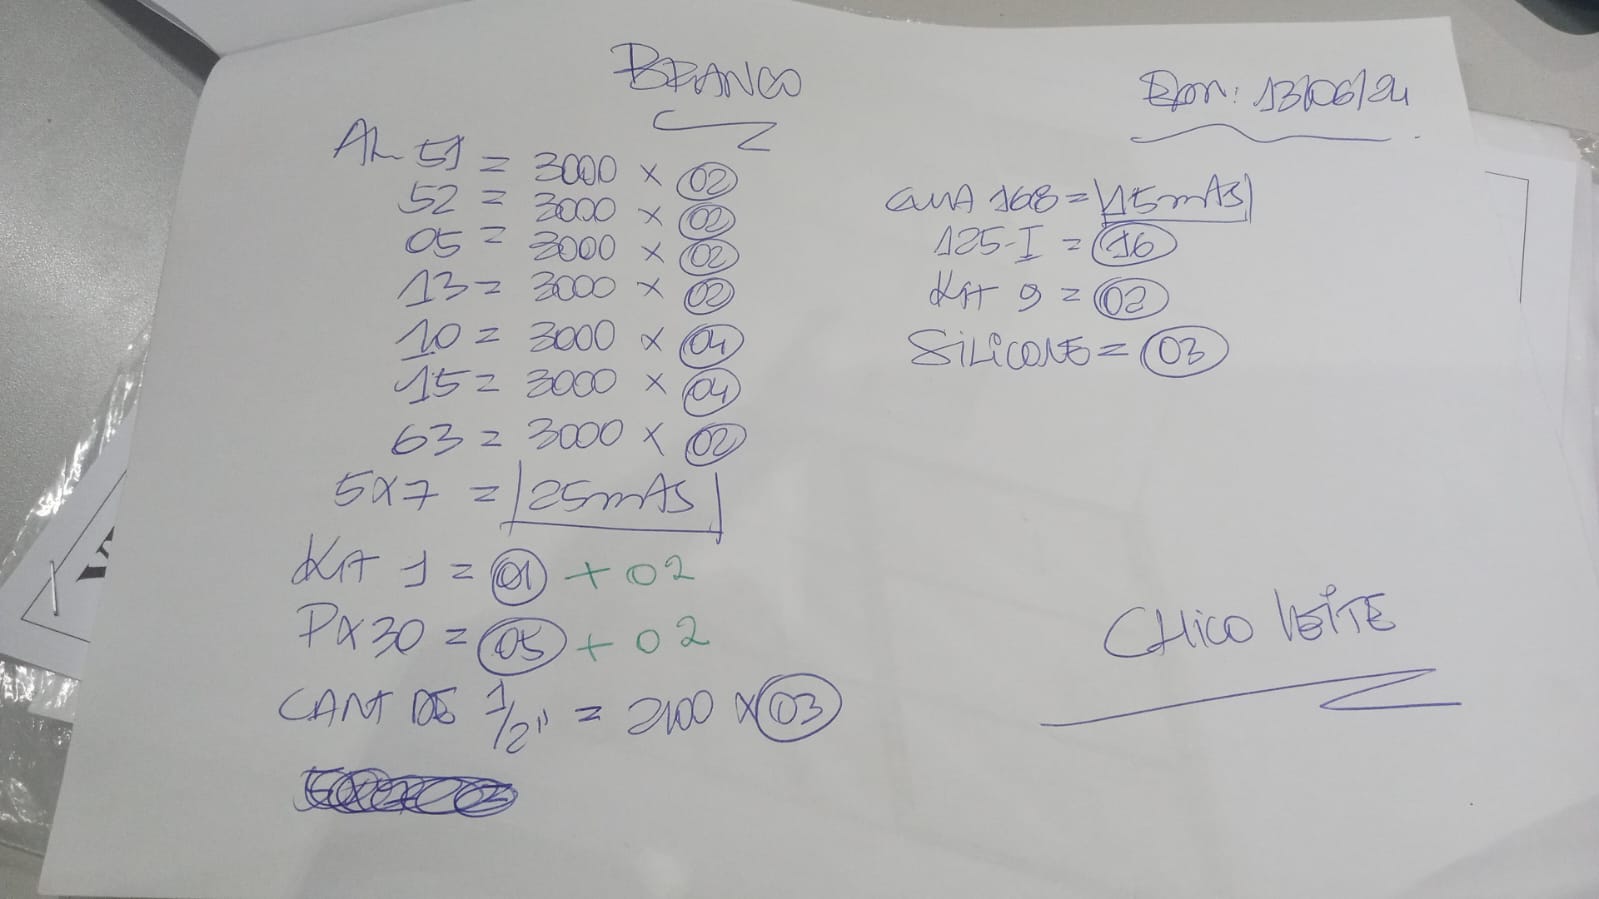 BRANCO
Em: 13/06/24
AL 51 = 3000 x 02
52 = 3000 x 02
05 = 3000 x 02
13 = 3000 x 02
10 = 3000 x 04
15 = 3000 x 04
63 = 3000 x 02
5x7 = 25mAS
Kit 1 = 01 + 02
Px30 = 05 + 02
CANT DE 1/2" = 2100 x 03
GUIA 168 = 15mAS
125-I = 16
Kit 9 = 02
SILICONE = 03
CHICO LEITE